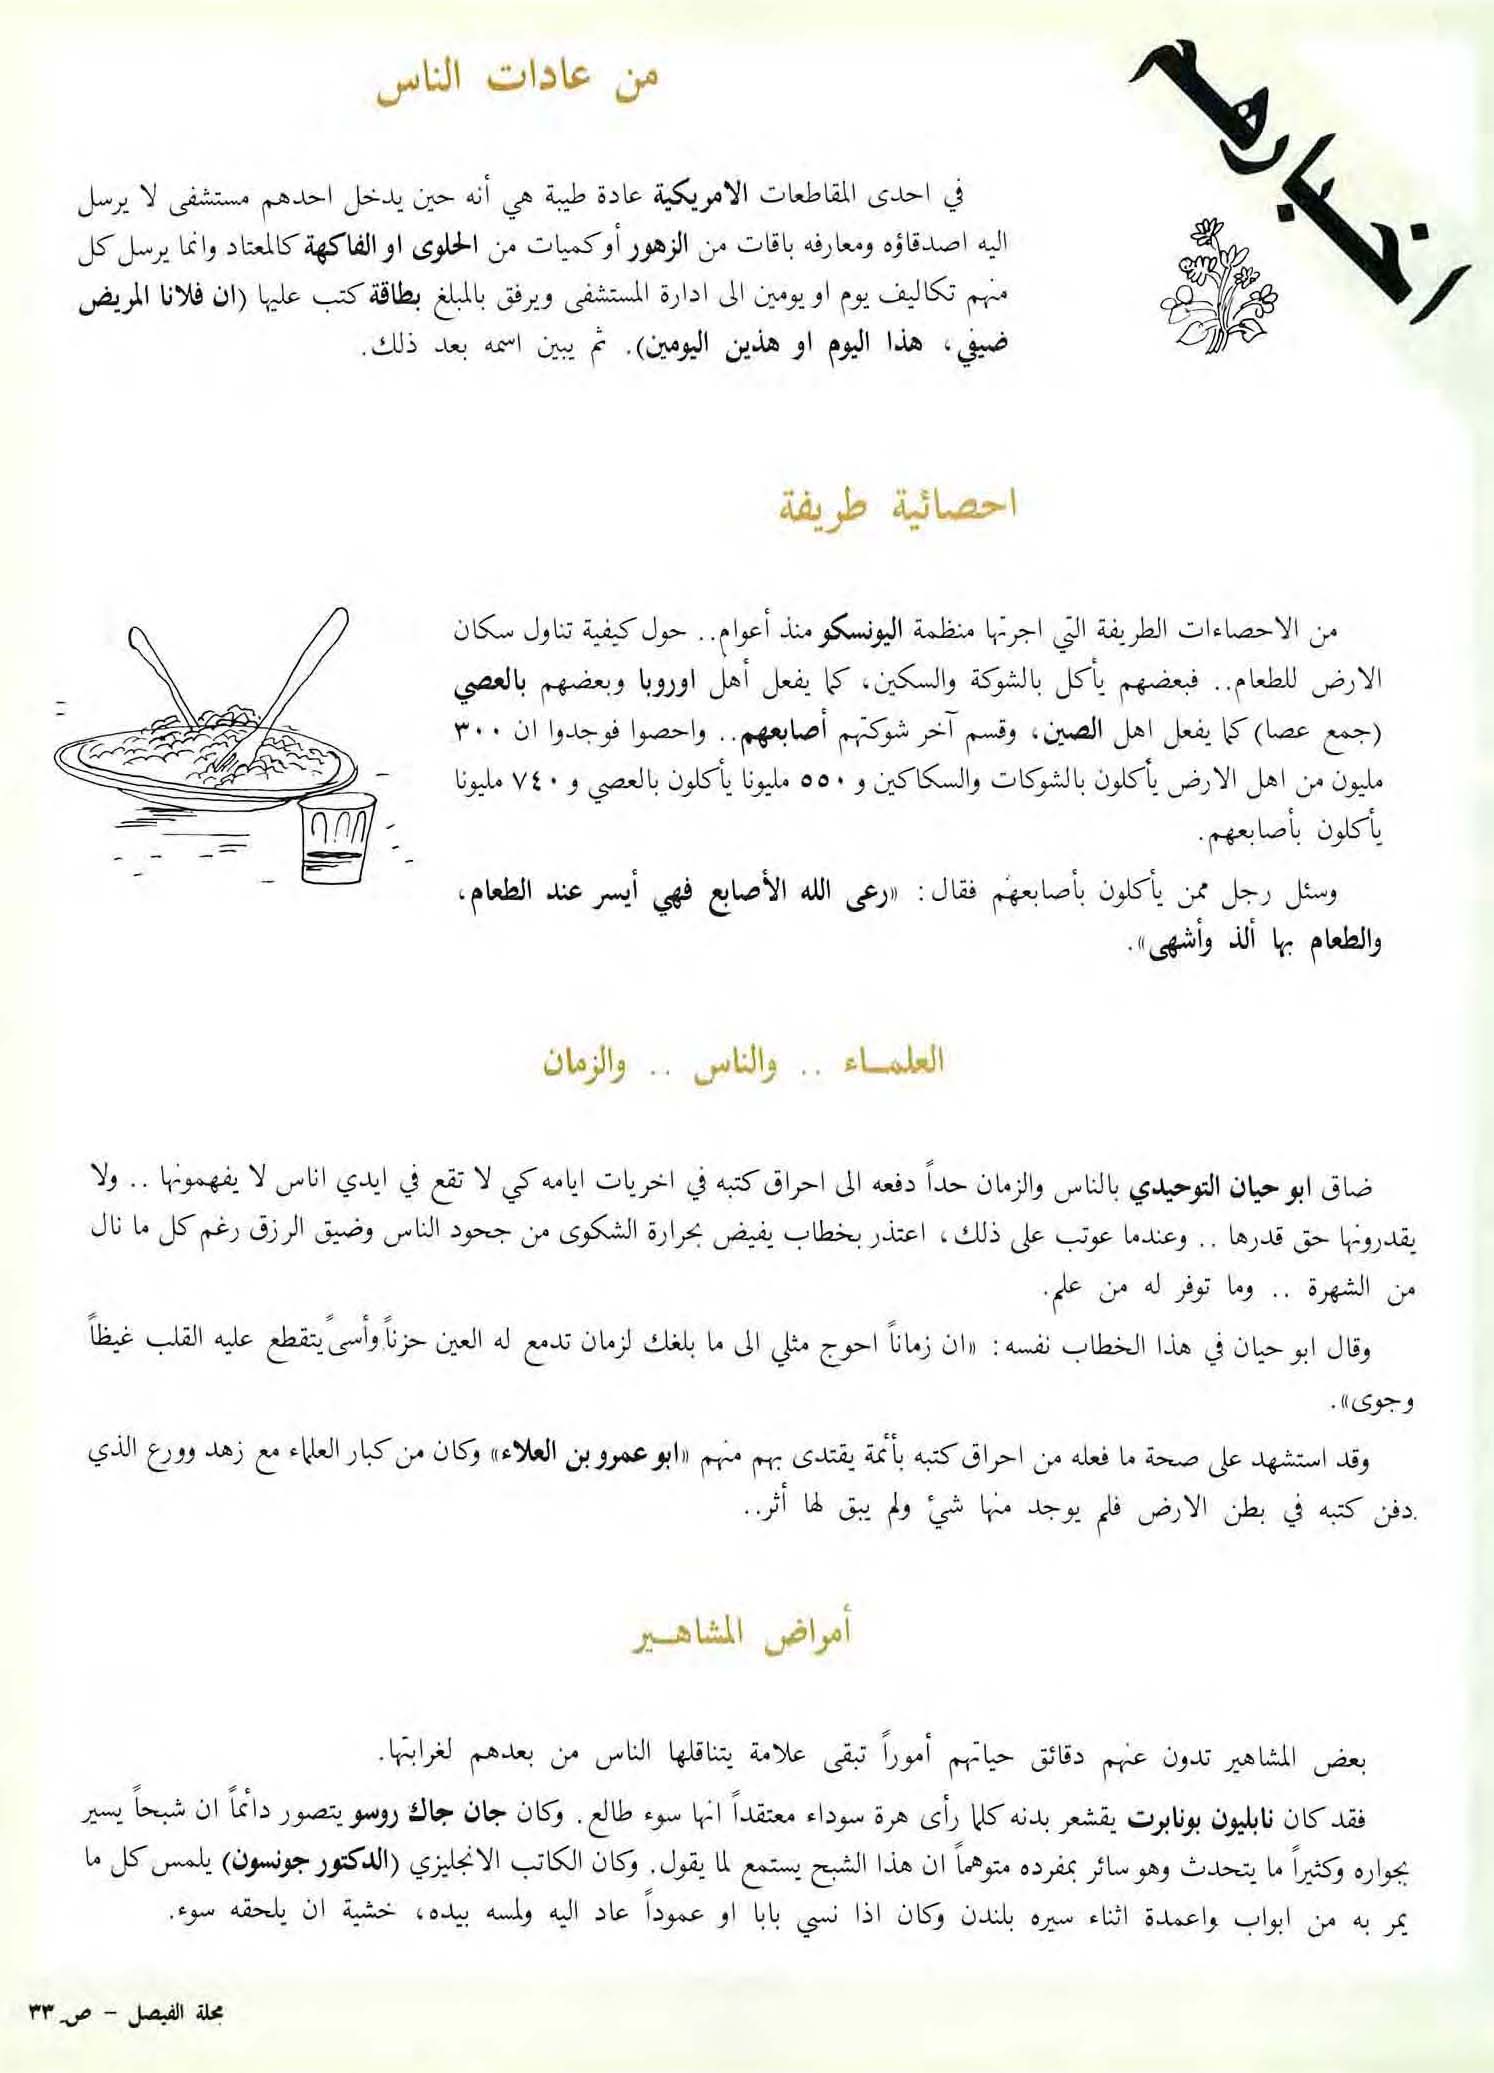 من عادات الناس
في احدى المقاطعات الامريكية عادة طيبة هي أنه حين يدخل احدهم مستشفى لا يرسل
اليه اصدقاؤه ومعارفه باقات من الزهور أو كميات من الحلوى او الفاكهة كالمعتاد وانما يرسل كل
منهم تكاليف يوم او يومين الى ادارة المستشفى ويرفق بالمبلغ بطاقة كتب عليها (ان فلانا المريض
ضيفي، هذا اليوم او هذين اليومين). ثم يبين اسمه بعد ذلك.
احصائية طريفة
من الاحصاءات الطريفة التي اجرتها منظمة اليونسكو منذ أعوام.. حول كيفية تناول سكان
الارض للطعام.. فبعضهم يأكل بالشوكة والسكين، كما يفعل أهل اوروبا وبعضهم بالعصي
(جمع عصا) كما يفعل اهل الصين، وقسم آخر شوكتهم أصابعهم.. واحصوا فوجدوا ان ٣٠٠
مليون من اهل الارض يأكلون بالشوكات والسكاكين و ٥٥٠ مليونا يأكلون بالعصي و ٧٤٠ مليونا
يأكلون بأصابعهم.
وسئل رجل ممن يأكلون بأصابعهم فقال: «رعى الله الأصابع فهي أيسر عند الطعام،
والطعام بها ألذ وأشهى».
العلمـاء .. والناس .. والزمان
ضاق ابو حيان التوحيدي بالناس والزمان حداً دفعه الى احراق كتبه في اخريات ايامه كي لا تقع في ايدي اناس لا يفهمونها .. ولا
يقدرونها حق قدرها .. وعندما عوتب على ذلك، اعتذر بخطاب يفيض بحرارة الشكوى من جحود الناس وضيق الرزق رغم كل ما نال
من الشهرة .. وما توفر له من علم.
وقال ابو حيان في هذا الخطاب نفسه: «ان زماناً احوج مثلي الى ما بلغك لزمان تدمع له العين حزناً وأسىً يتقطع عليه القلب غيظاً
وجوى».
وقد استشهد على صحة ما فعله من احراق كتبه بأئمة يقتدى بهم منهم «ابو عمرو بن العلاء» وكان من كبار العلماء مع زهد وورع الذي
دفن كتبه في بطن الارض فلم يوجد منها شيء ولم يبق لها أثر..
أمراض المشاهـير
بعض المشاهير تدون عنهم دقائق حياتهم أموراً تبقى علامة يتناقلها الناس من بعدهم لغرابتها.
فقد كان نابليون بونابرت يقشعر بدنه كلما رأى هرة سوداء معتقداً انها سوء طالع. وكان جان جاك روسو يتصور دائماً ان شبحاً يسير
بجواره وكثيراً ما يتحدث وهو سائر بمفرده متوهماً ان هذا الشبح يستمع لما يقول. وكان الكاتب الانجليزي (الدكتور جونسون) يلمس كل ما
يمر به من ابواب واعمدة اثناء سيره بلندن وكان اذا نسي بابا او عموداً عاد اليه ولمسه بيده، خشية ان يلحقه سوء.
مجلة الفيصل - ص ٣٣